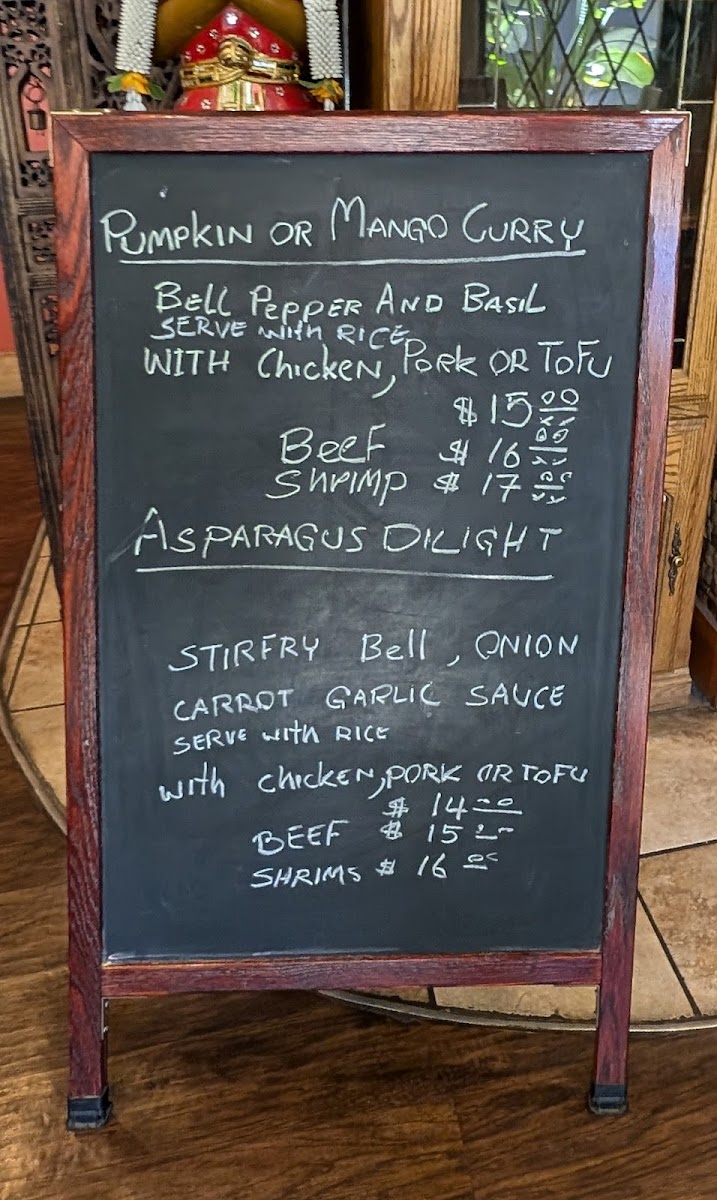 PUMPKIN OR MANGO CURRY
BELL PEPPER AND BASIL
SERVE with RICE
WITH Chicken, PORK OR TOFU
$ 15 00
BEEF $ 16 00
SHRIMP $ 17 00
ASPARAGUS DILIGHT
STIRFRY Bell, ONION
CARROT GARLIC SAUCE
SERVE with RICE
with chicken, PORK OR TOFU
$ 14 00
BEEF $ 15 00
SHRIMS $ 16 00